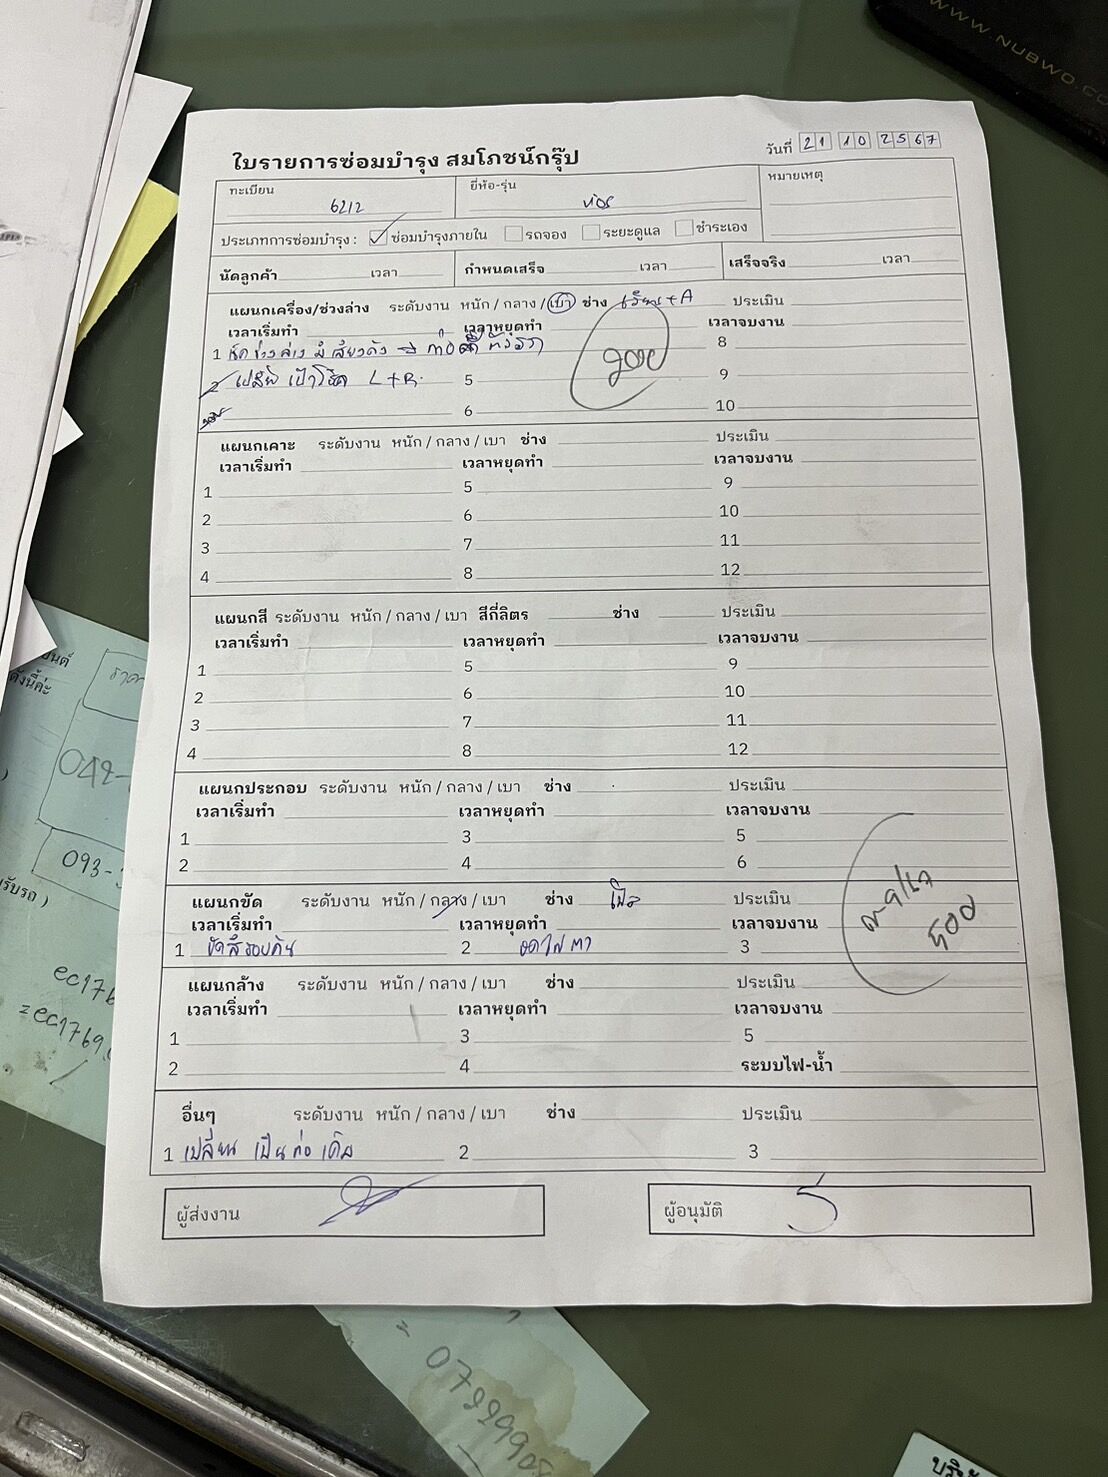 WWW.NUBWO.CO
ใบรายการซ่อมบำรุง สมโภชน์กรุ๊ป
วันที่ 21 10 2567
ทะเบียน ยี่ห้อ-รุ่น หมายเหตุ
6212
ประเภทการซ่อมบำรุง : ซ่อมบำรุงภายใน รถจอง ระยะดูแล ชำระเอง
นัดลูกค้า เวลา กำหนดเสร็จ เวลา เสร็จจริง เวลา
แผนกเครื่อง/ช่วงล่าง ระดับงาน หนัก / กลาง / เบา ช่าง +A ประเมิน
เวลาเริ่มทำ เวลาหยุดทำ เวลาจบงาน
1 เช็คช่วงล่าง มีเสียงดัง 8
2 เปลี่ยน เบ้าโช๊ค L+R. 5 9
6 10
แผนกเคาะ ระดับงาน หนัก / กลาง / เบา ช่าง ประเมิน
เวลาเริ่มทำ เวลาหยุดทำ เวลาจบงาน
1 5 9
2 6 10
3 7 11
4 8 12
แผนกสี ระดับงาน หนัก / กลาง / เบา สีกี่ลิตร ช่าง ประเมิน
เวลาเริ่มทำ เวลาหยุดทำ เวลาจบงาน
1 5 9
2 6 10
3 7 11
4 8 12
แผนกประกอบ ระดับงาน หนัก / กลาง / เบา ช่าง ประเมิน
เวลาเริ่มทำ เวลาหยุดทำ เวลาจบงาน
1 3 5
2 4 6
แผนกขัด ระดับงาน หนัก / กลาง / เบา ช่าง ประเมิน
เวลาเริ่มทำ เวลาหยุดทำ เวลาจบงาน
1 ขัดสีรอบคัน 2 3
500
แผนกล้าง ระดับงาน หนัก / กลาง / เบา ช่าง ประเมิน
เวลาเริ่มทำ เวลาหยุดทำ เวลาจบงาน
1 3 5
2 4 ระบบไฟ-น้ำ
อื่นๆ ระดับงาน หนัก / กลาง / เบา ช่าง ประเมิน
1 เปลี่ยน เป็นท่อเดิม 2 3
ผู้ส่งงาน ผู้อนุมัติ
042-
093-
รับรถ )